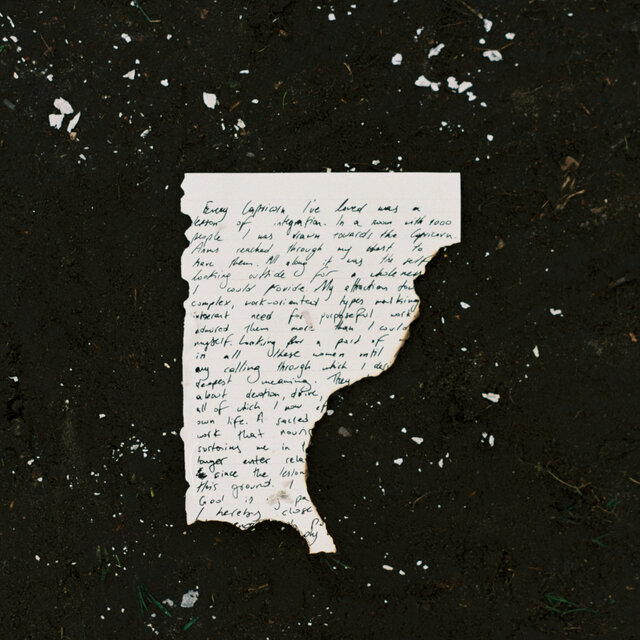 Every Capricorn I've loved was a
lesson of integration. In a room with 1000
people I was drawn towards the Capricorn
Arms reached through my chest to
have them. All along it was the self
looking outside for a wholeness
I could provide. My attraction to
complex, work-oriented types making
interest need for purposeful work
admired them more than I could
myself. Looking for a part of
in all these women until
my calling through which I
deepest meaning. They
about devotion, drive,
all of which I now
own life. A sacred
work that
sustaining me in
longer enter
since the lesson
this ground. I
God is
I hereby close